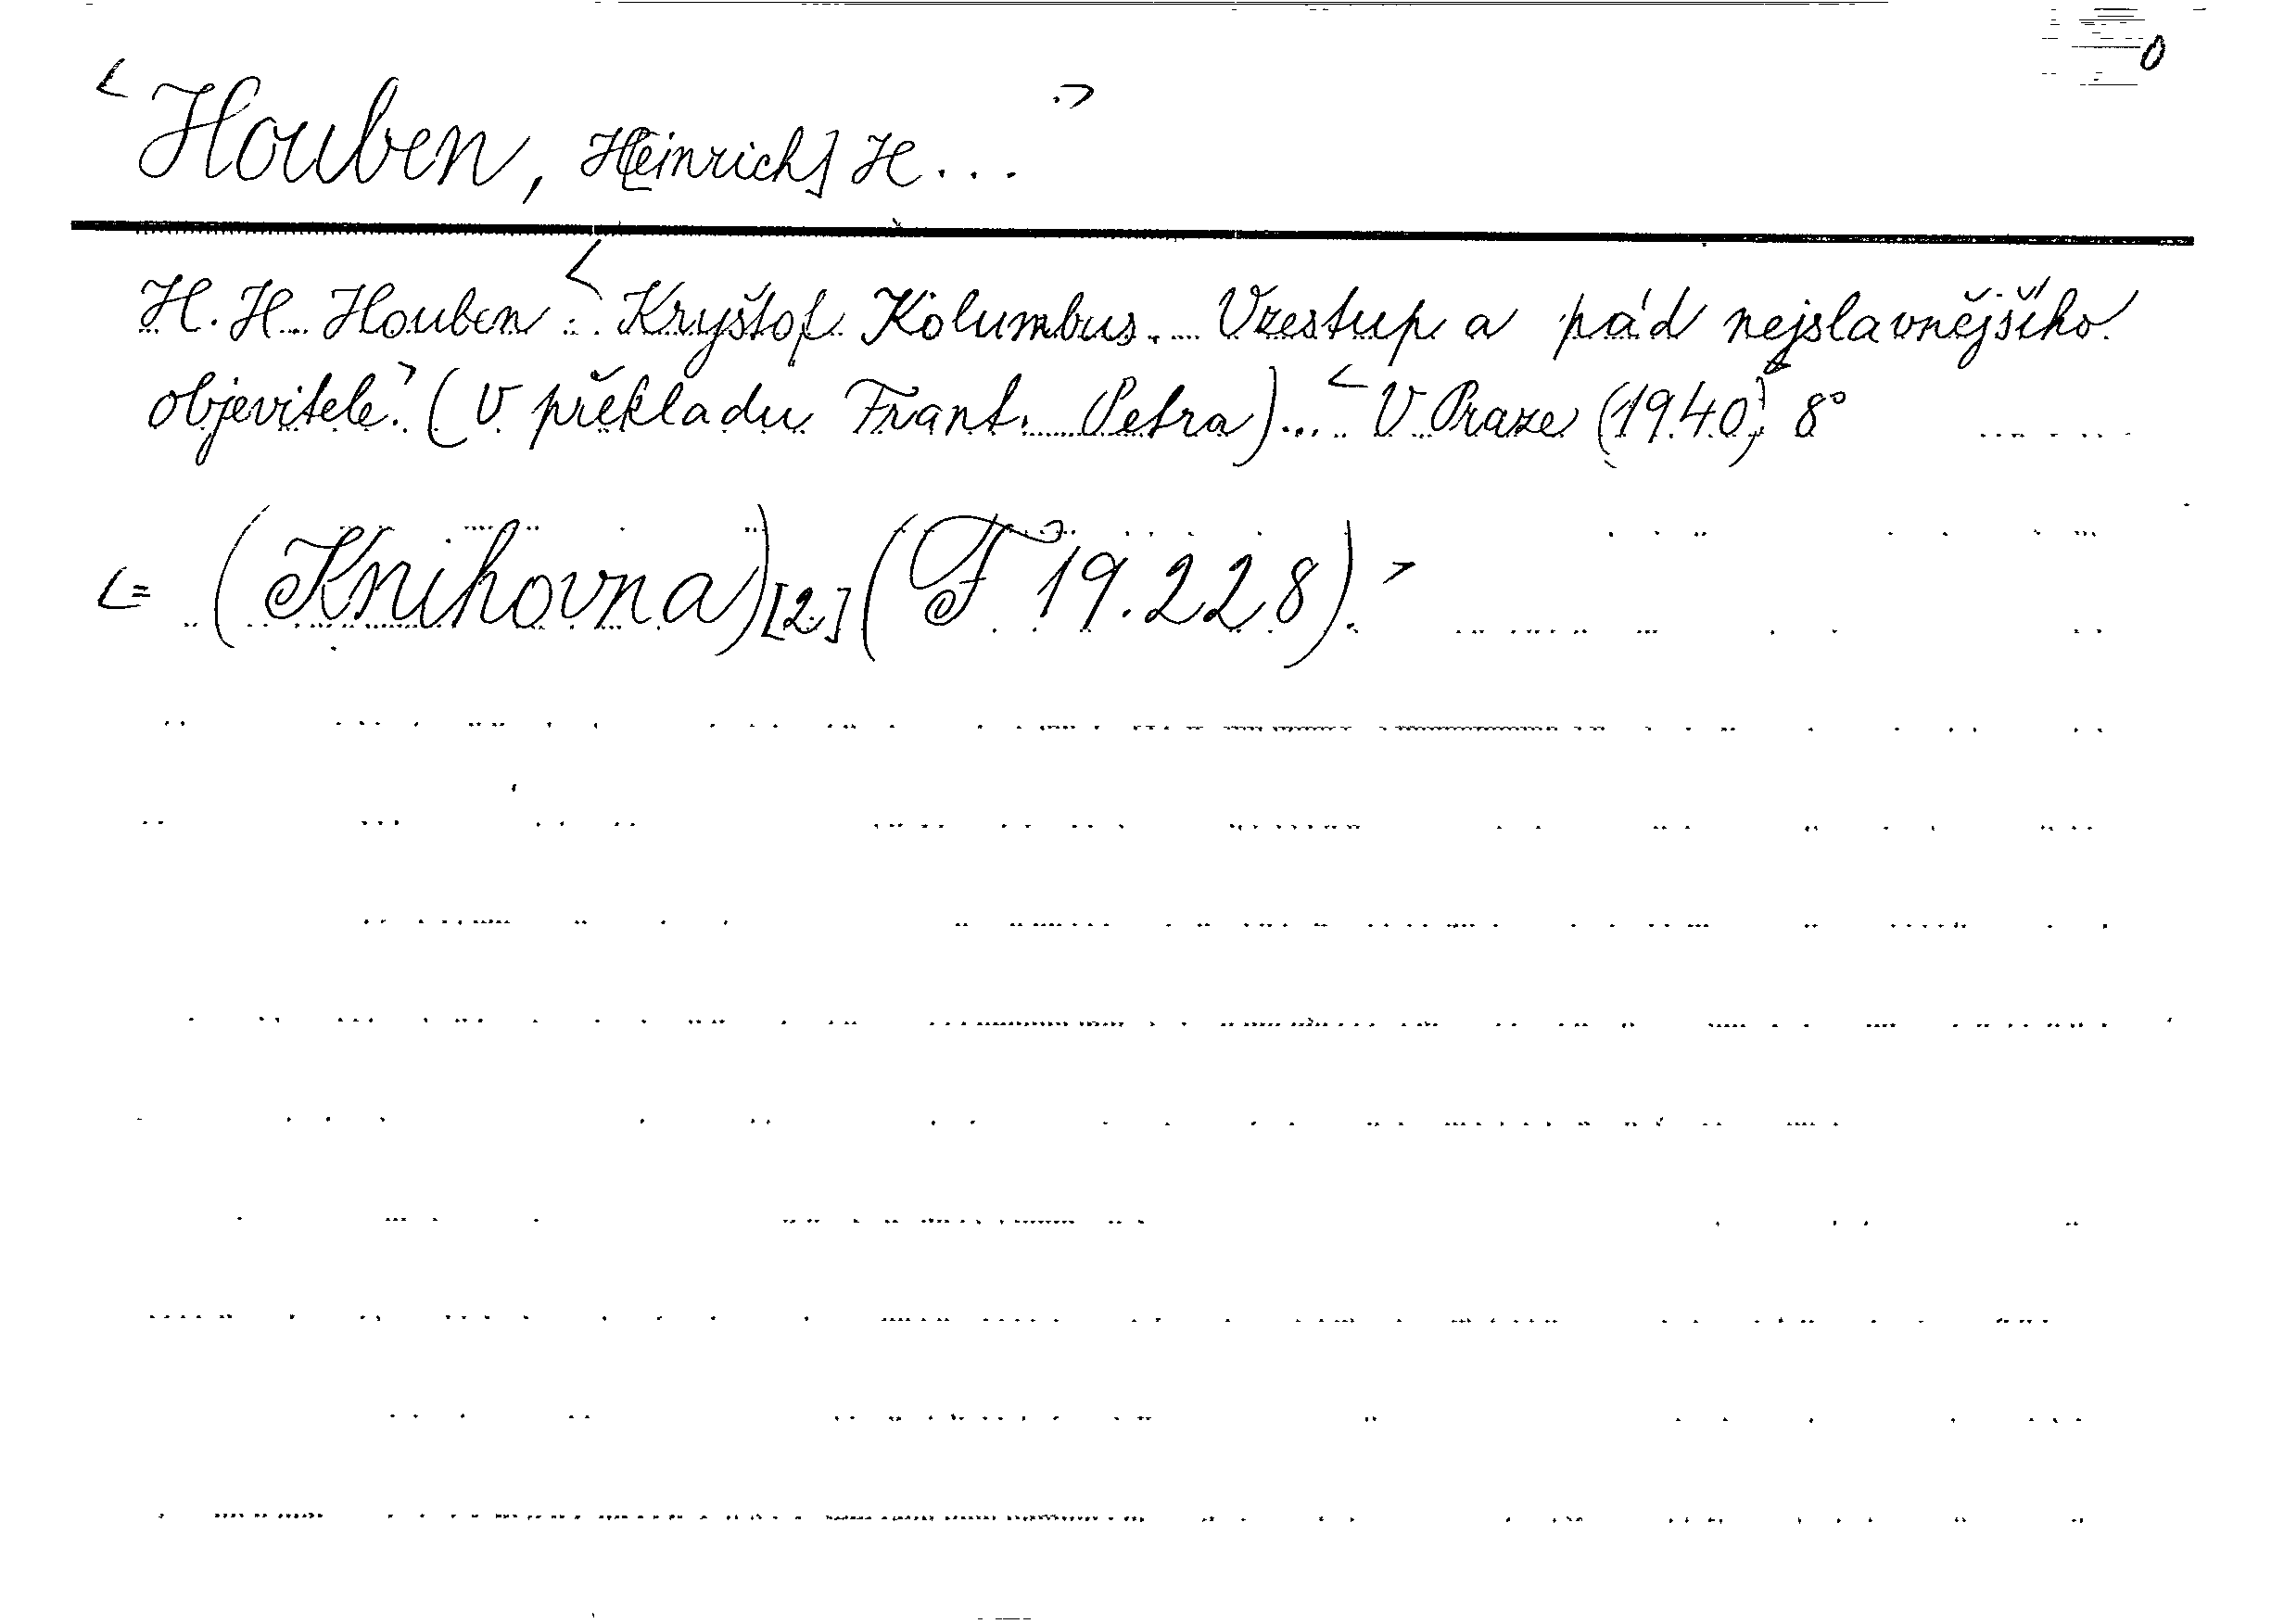 0
< Houben, H[einrich] H... >
H. H. Houben: < Kryštof Kolumbus. Vzestup a pád nejslavnějšího
objevitele.> (V překladu Frant. Petra)... < V Praze (1940) 8°
<= (Knihovna)[2.] (F 19.228). >